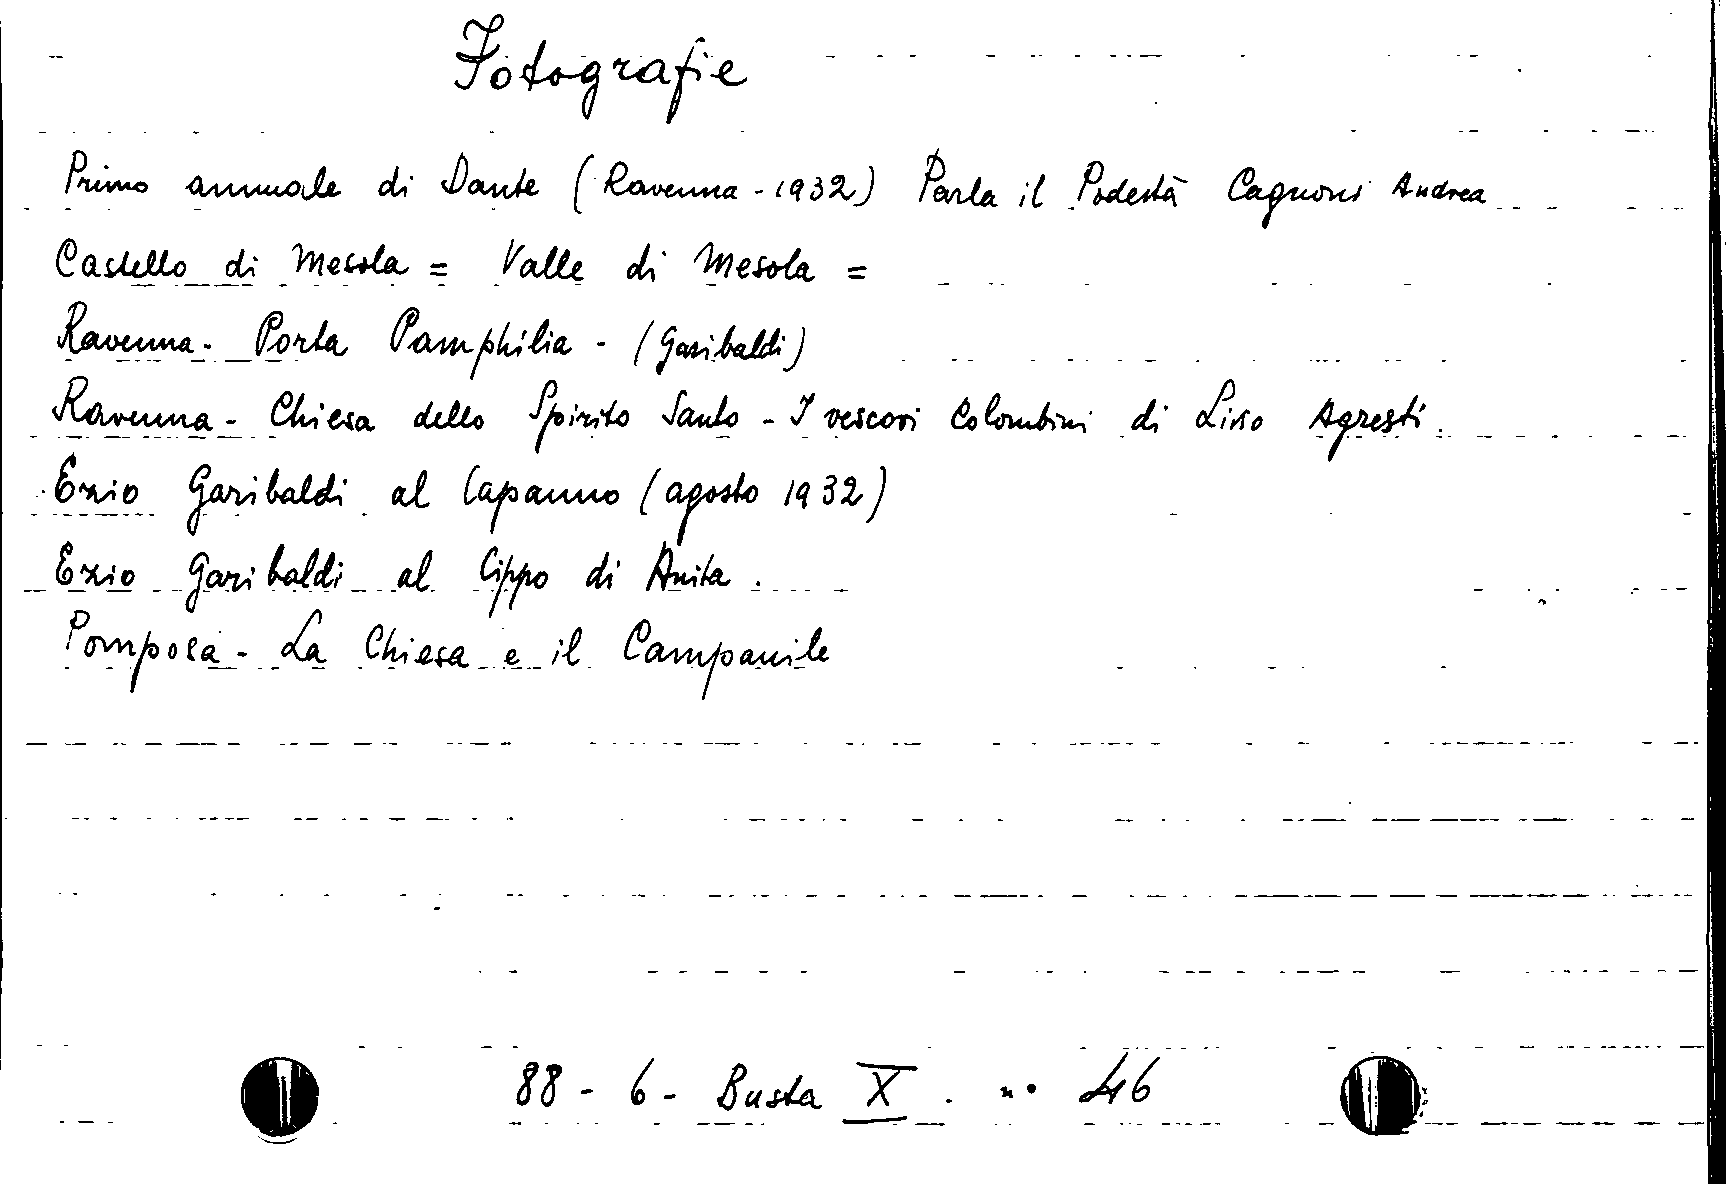 Fotografie
Primo annuale di Dante (Ravenna - 1932) Parla il Podestà Cagnoni Andrea
Castello di Mesola = Valle di Mesola =
Ravenna - Porta Pamphilia - (Garibaldi)
Ravenna - Chiesa dello Spirito Santo - I vescovi Colombini di Livio Agresti.
Ezio Garibaldi al Capanno (agosto 1932)
Ezio Garibaldi al Cippo di Anita.
Pomposa - La Chiesa e il Campanile
88 - 6 - Busta X . n° 46